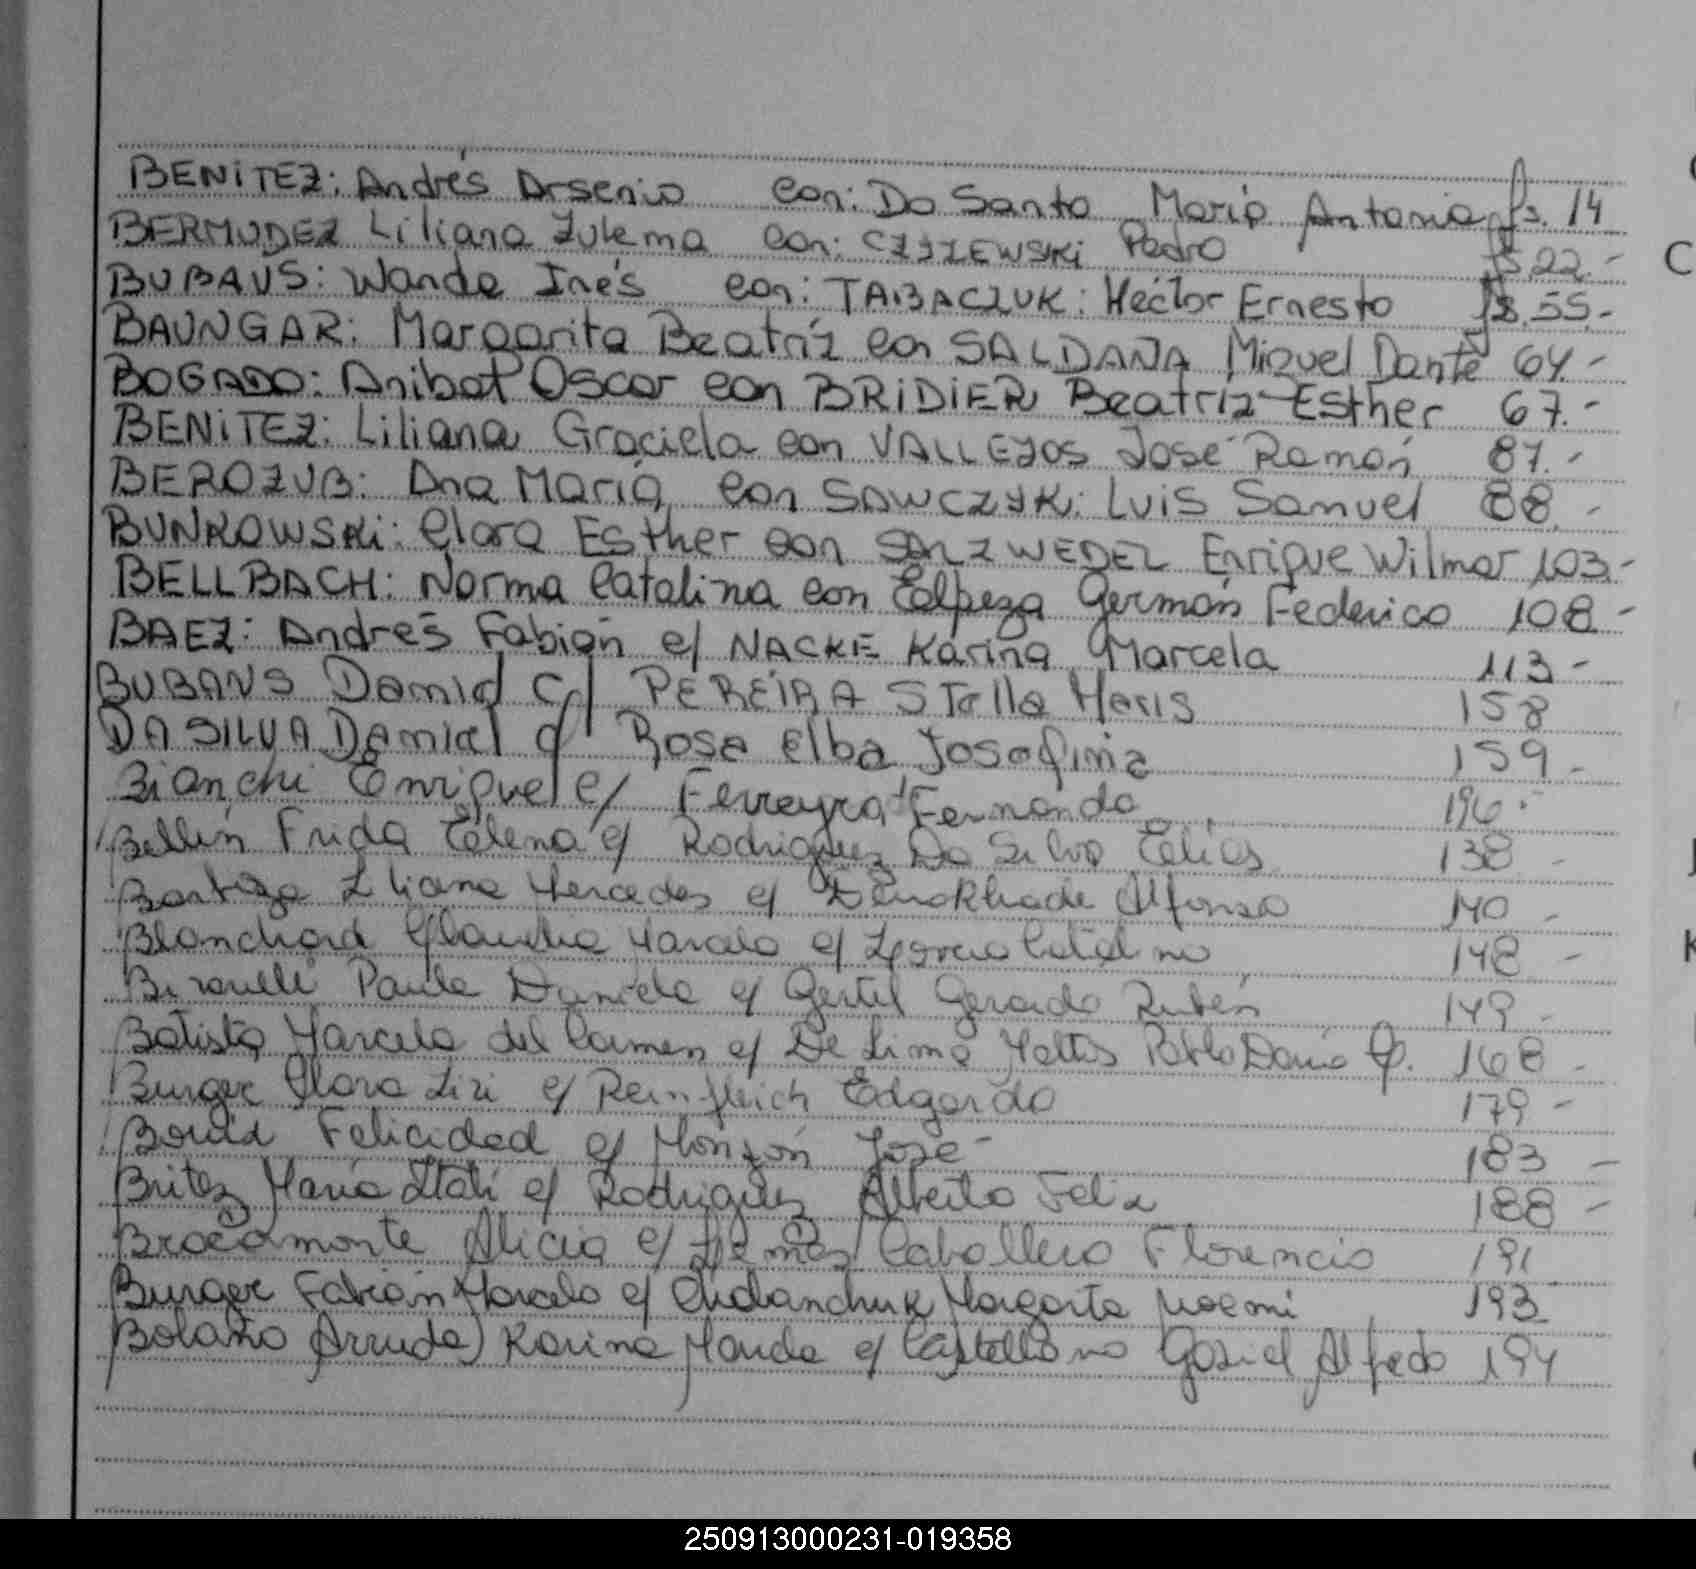 BENITEZ: Andrés Arsenio con: Do Santo María Antonia fs. 14
BERMUDEZ Liliana Zulema con: CZYZEWSKi Pedro fs 22.-
BUBAUS: Wanda Inés con: TABACZUK: Héctor Ernesto fs. 55.-
BAUNGAR: Margarita Beatríz con SALDAÑA Miguel Dante 64.-
BOGADO: Anibal Oscar con BRiDiER Beatríz Esther 67.-
BENiTEZ: Liliana Graciela con VALLEJOS José Ramón 87.-
BEROZUB: Ana María con SAWCZYK: Luis Samuel 88.-
BUNKOWSKi: Clara Esther con SALZWEDEL Enrique Wilmar 103.-
BELLBACH: Norma Catalina con Germán Federico 108-
BAEZ: Andrés Fabián c/ NACKE Karina Marcela 113-
BUBAUS Daniel c/ PEREIRA Stella Maris 158
DA SILVA Daniel c/ Rosa Elba Josefina 159-
Bianchi Enrique c/ Ferreyra Fernanda 196.-
Bellin Frida Elena c/ Rodriguez Da Silva Elias 138-
Liliana Mercedes c/ Alfonso 140-
Blanchard Claudia c/ 148-
Paula Daniela c/ Gertel Gerardo Rubén 149-
Batista Marcela del Carmen c/ De Lima Mattos Pablo Dario 168-
Burger Clara Lizi c/ Reinfleich Edgardo 179-
Felicidad c/ Monzón José 183-
Britez María Itatí c/ Rodriguez Alberto Felix 188-
Bracamonte Alicia c/ Caballero Florencio 191
Burger Fabián Marcelo c/ Chudanchuk Margarita Noemi 193
Bolaño Arruda Karina c/ Castellano Alfredo 194
C
K
250913000231-019358